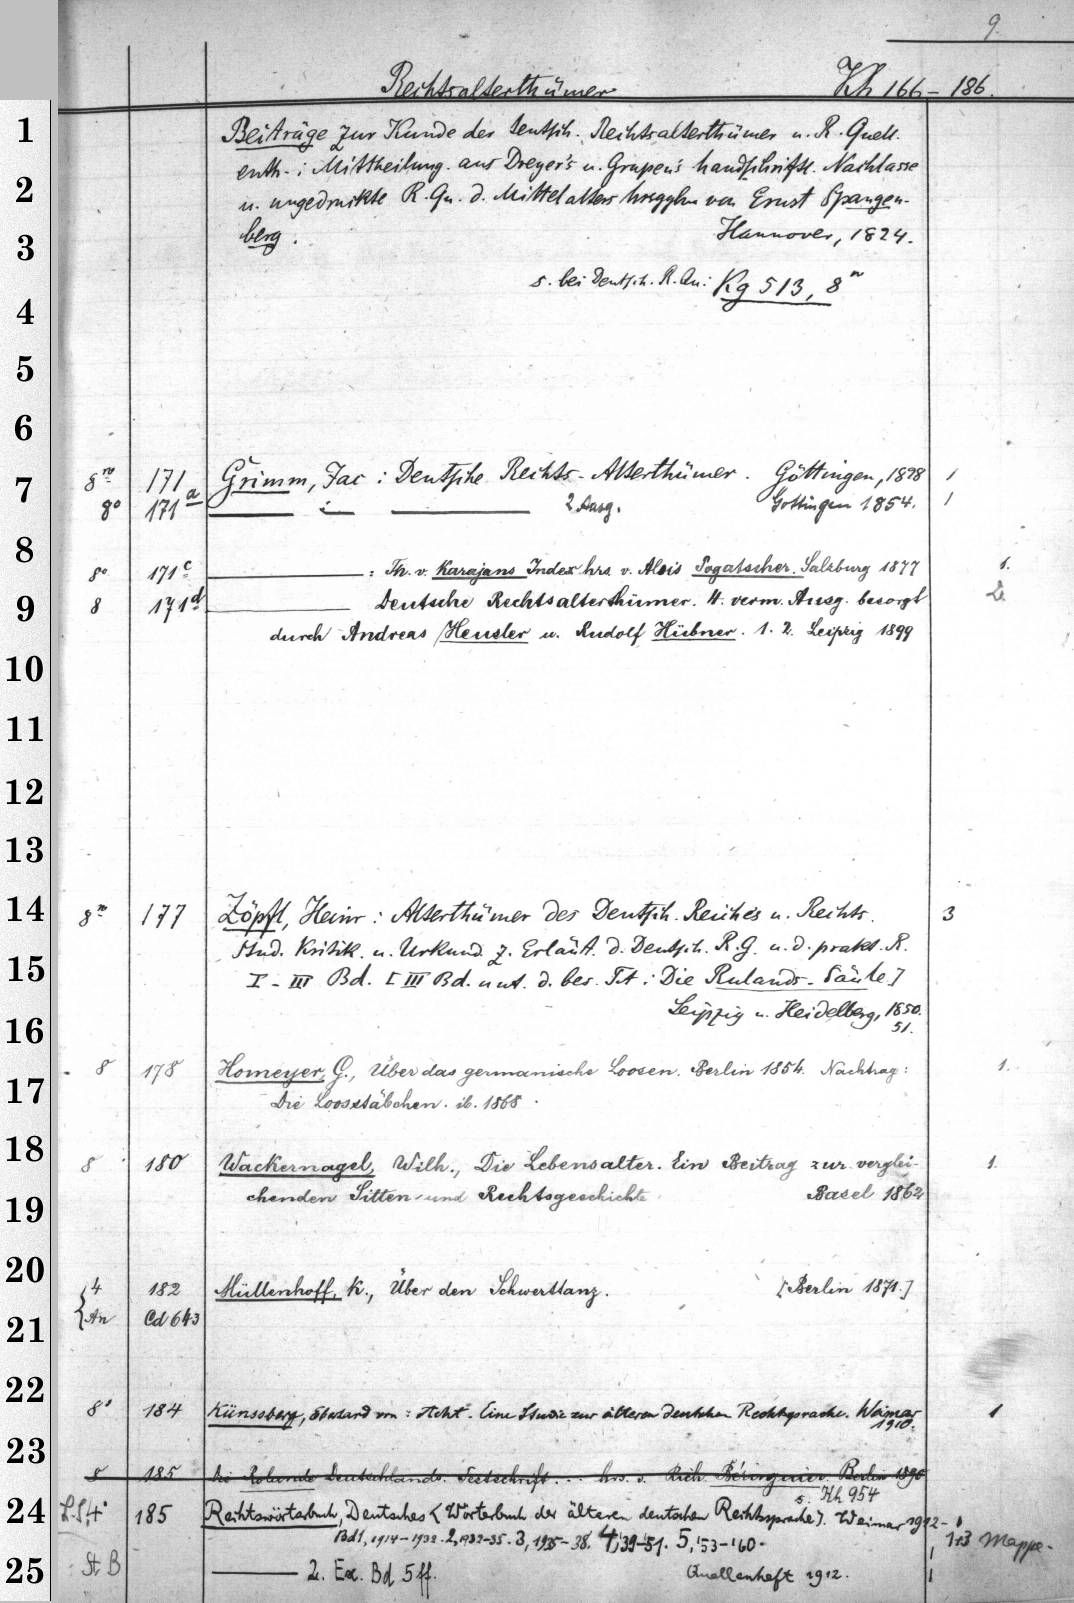 9.
Rechtsalterthümer Kh 166 - 186.
1 Beiträge zur Kunde der deutsch. Rechtsalterthümer u. R. Quell.
enth.: Mittheilung. aus Dreyer's u. Grupen's handschriftl. Nachlasse
2 u. ungedruckte R. Qu. d. Mittelalters hrsggbn von Ernst Spangen-
3 berg. Hannover, 1824.
4 s. bei Deutsch. R. Qu.: Kg 513, 8°
5
6
7 8° 171 Grimm, Jac: Deutsche Rechts-Alterthümer. Göttingen, 1828 1
8° 171a 2 Ausg. Göttingen 1854. 1
8 8° 171c : Th. v. Karajans Index hrs. v. Alois Pogatscher. Salzburg 1877 1.
9 8 171d Deutsche Rechtsalterthümer. 4. verm. Ausg. besorgt 2.
durch Andreas Heusler u. Rudolf Hübner. 1. 2. Leipzig 1899
10
11
12
13
14 8° 177 Zöpfl, Heinr: Alterthümer des Deutsch. Reiches u. Rechts. 3
Stud. Kritik. u. Urkund. z. Erläut. d. Deutsch. R. G. u. d. prakt. R.
15 I - III Bd. [III Bd. unt. d. bes. Tit: Die Rulands-Säule.]
16 Leipzig u. Heidelberg, 1850.
51.
17 8 178 Homeyer, G., Über das germanische Loosen. Berlin 1854. Nachtrag: 1.
Die Loosstäbchen. ib. 1868.
18 8 180 Wackernagel, Wilh., Die Lebensalter. Ein Beitrag zur verglei- 1.
19 chenden Sitten- und Rechtsgeschichte. Basel 1862
20 4 182 Müllenhoff, K., Über den Schwerttanz. [Berlin 1871.]
21 An Cd 643
22 8° 184 Künssberg, Eberhard von: Acht. Eine Studie zur älteren deutschen Rechtssprache. Weimar 1
1910.
23 8 185 Die Rolande Deutschlands. Festschrift... hrs. v. Rich. Béringuier. Berlin 1890
s. Hh 954
24 L.S. 4° 185 Rechtswörterbuch, Deutsches (Wörterbuch der älteren deutschen Rechtssprache). Weimar 1912-
Bd 1, 1914-1932. 2, 1932-35. 3, 1935-38. 4, '39-'51. 5, '53-'60- 1+3 Mappe.
25 St B 2. Ex. Bd 5 ff. Quellenheft 1912. 1